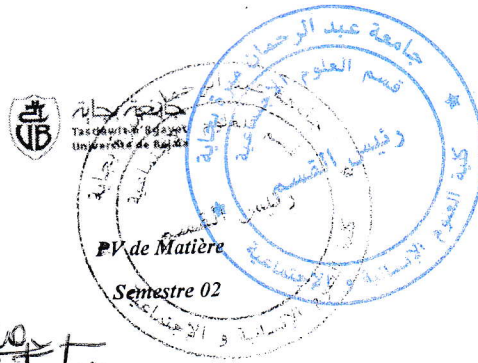 جامعة بجاية
Tasdawit n Bgayet
Université de Béjaïa
جامعة عبد الرحمان ميرة بجاية
قسم العلوم الاجتماعية
رئيس القسم
كلية العلوم الإنسانية و الاجتماعية
رئيس القسم
PV de Matière
Semestre 02